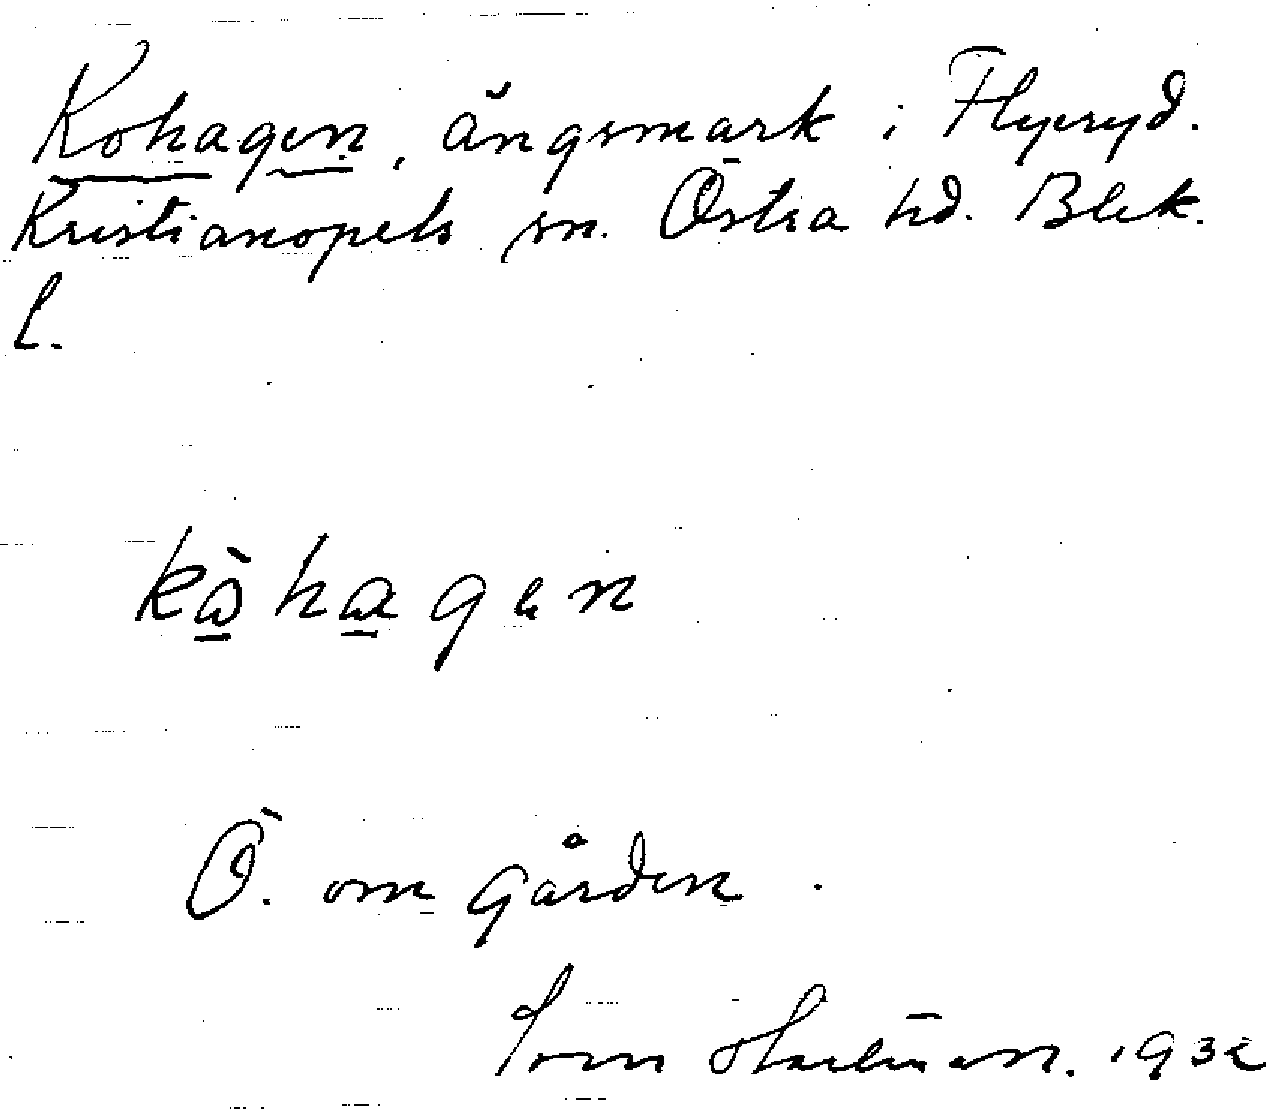 Kohagen, ängsmark i Flyeryd.
Kristianopels sn. Östra hd. Blek.
l.
kòhagen
Ö. om gården.
1932